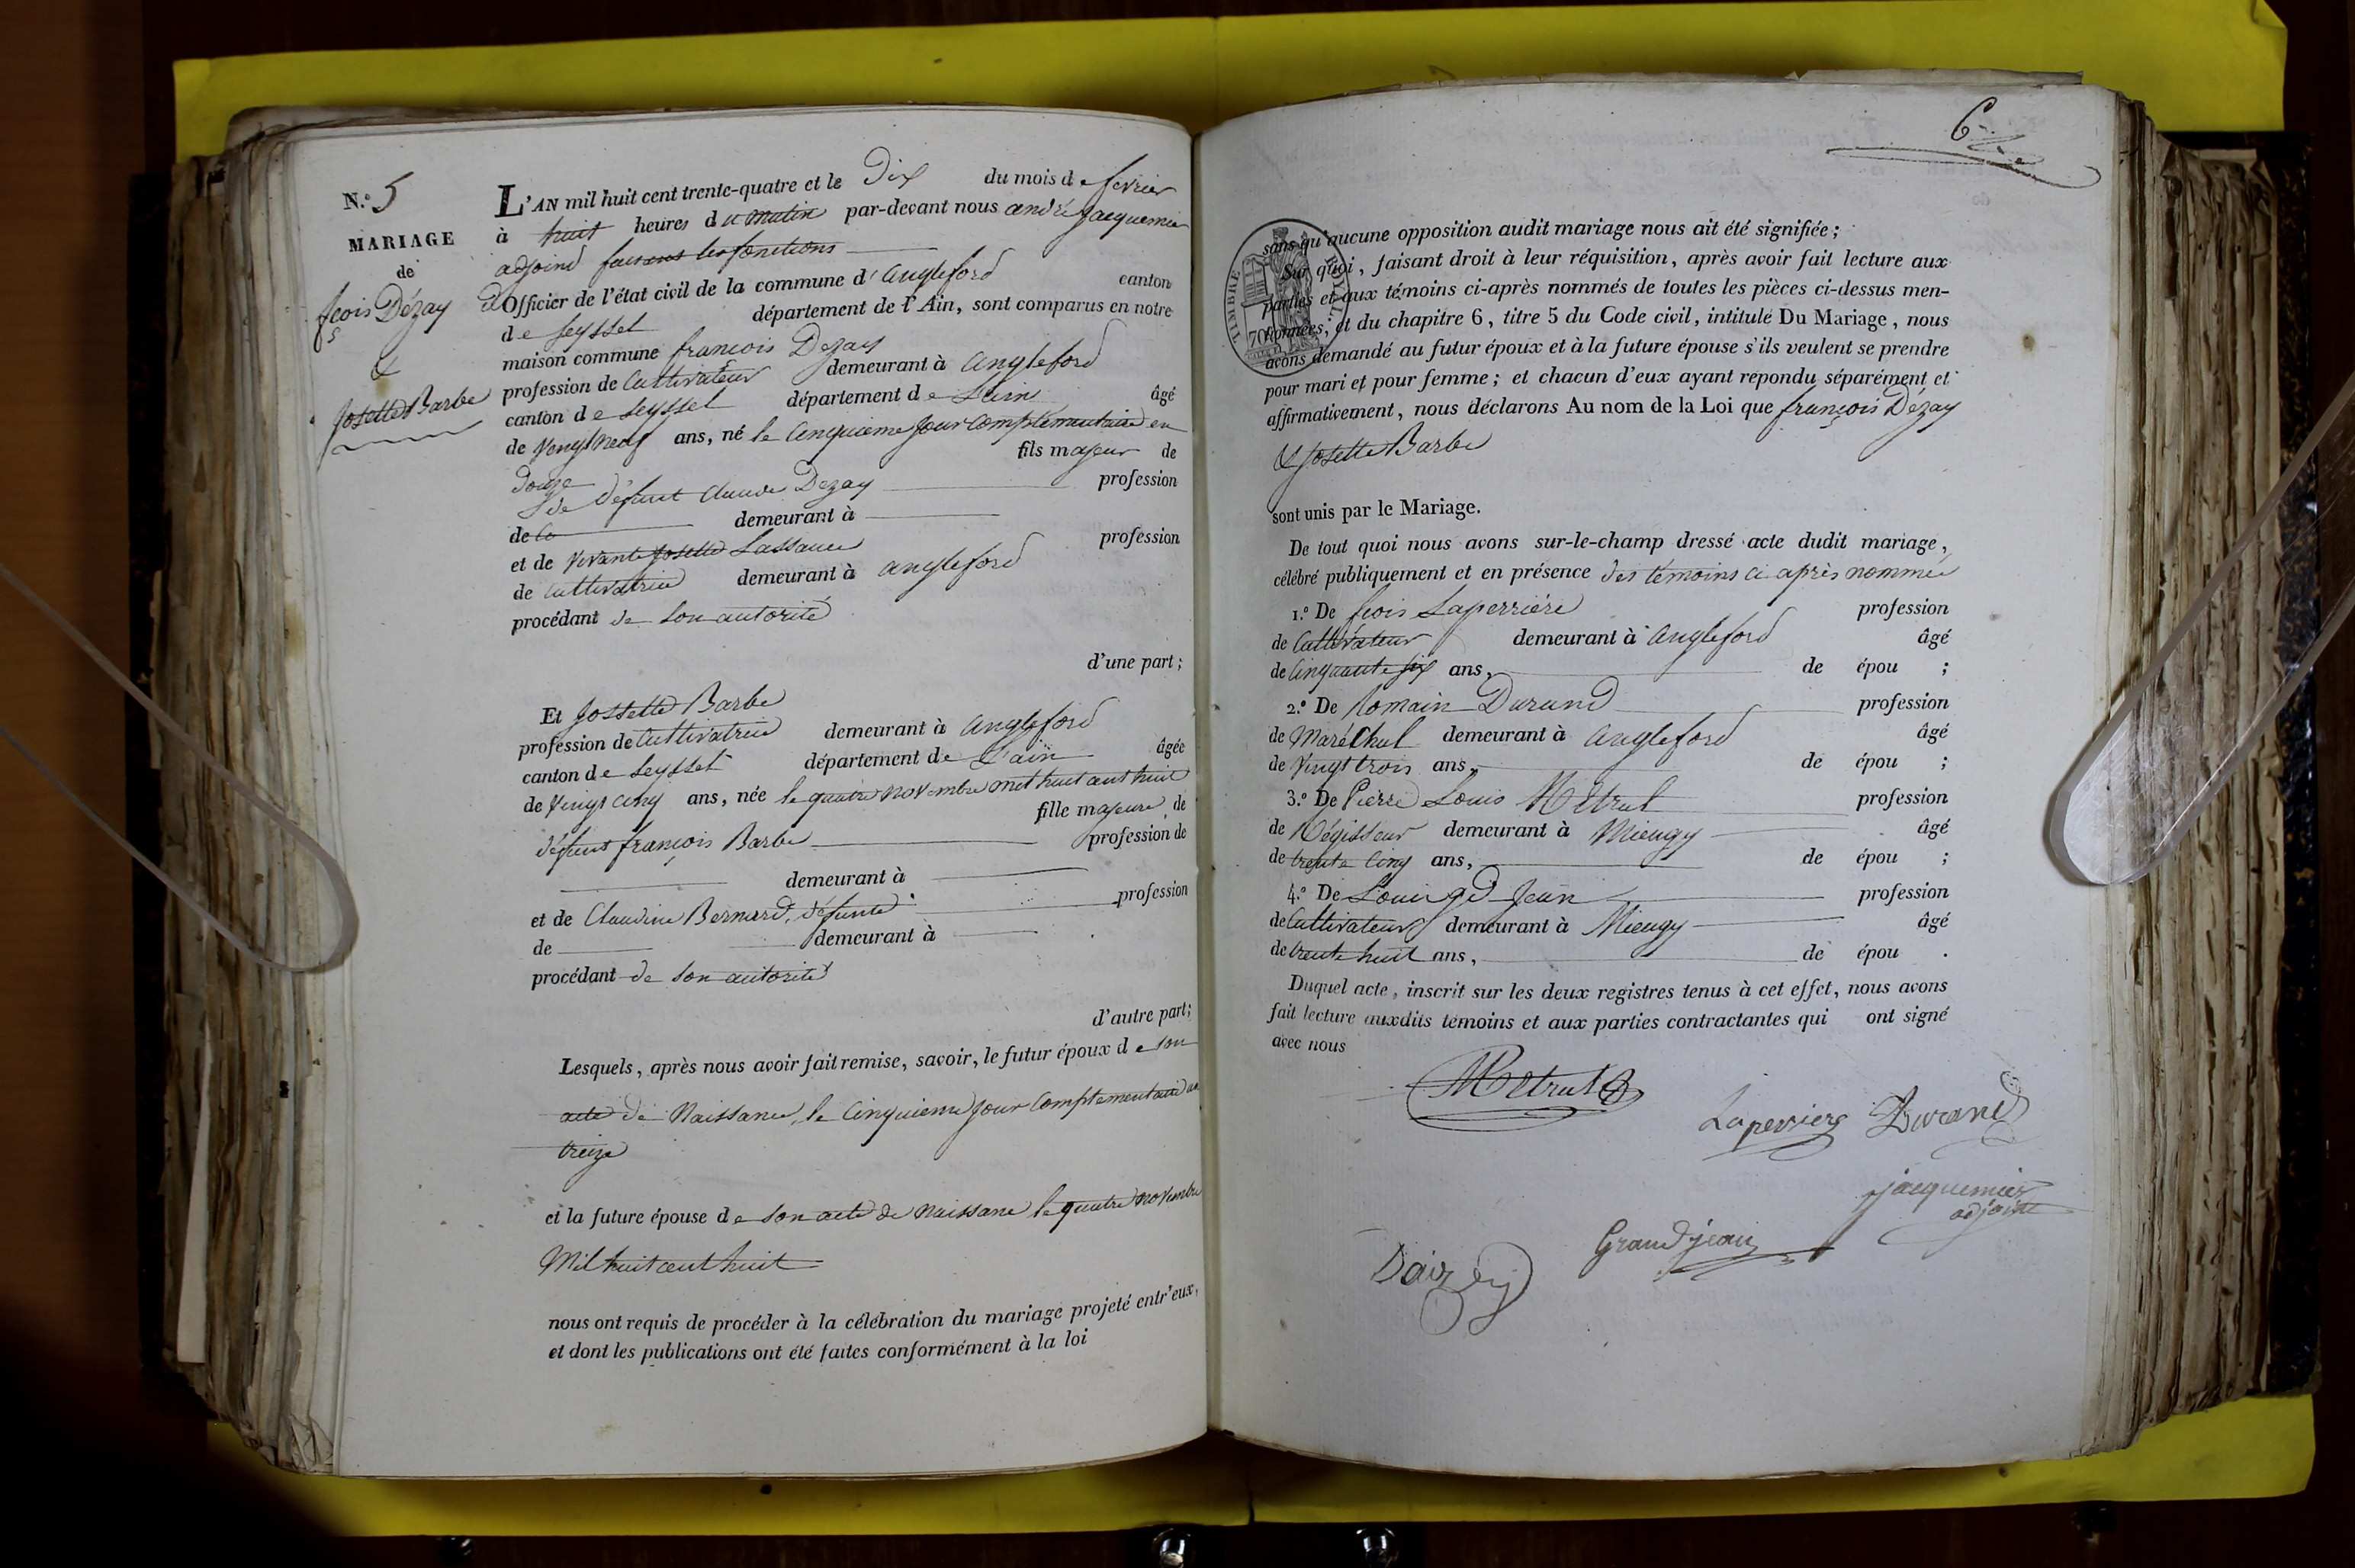 N.º 5
MARIAGE
de
fcois Dézay
fs
&
Josette Barbe
L'AN mil huit cent trente-quatre et le Dix du mois de fevrier
à huit heures du matin par-devant nous andré jacquemier
adjoind faisant les fonctions
d'Officier de l'état civil de la commune d'angleford canton
de Seyssel département de l'Ain, sont comparus en notre
maison commune francois Dezay
profession de Cultivateur demeurant à angleford
canton de Seyssel département de Lain âgé
de Vingt neuf ans, né le Cinquieme jour Complementaire en
Douze fils majeur de
de défunt Claude Dezay profession
de demeurant à
et de vivante Josette Lassance profession
de Cultivatrice demeurant à angleford
procédant de son autorité
d'une part;
Et Josette Barbe
profession de Cultivatrice demeurant à angleford
canton de Seyssel département de L'ain âgée
de Vingt cinq ans, née le quatre novembre mil huit cent huit
fille majeure de
défunt françois Barbe profession de
demeurant à
et de Claudine Bernard, défunte profession
de demeurant à
procédant de son autorité
d'autre part;
Lesquels, après nous avoir fait remise, savoir, le futur époux de son
acte de Naissance, le Cinquieme jour Complementaire an
treize
et la future épouse de son acte de Naissance le quatre novembre
Mil huit cent huit
nous ont requis de procéder à la célébration du mariage projeté entr'eux,
et dont les publications ont été faites conformément à la loi
6
TIMBRE ROYAL
70
sans qu'aucune opposition audit mariage nous ait été signifiée;
Sur quoi, faisant droit à leur réquisition, après avoir fait lecture aux
parties et aux témoins ci-après nommés de toutes les pièces ci-dessus men-
tionnées, et du chapitre 6, titre 5 du Code civil, intitulé Du Mariage, nous
avons demandé au futur époux et à la future épouse s'ils veulent se prendre
pour mari et pour femme; et chacun d'eux ayant répondu séparément et
affirmativement, nous déclarons Au nom de la Loi que françois Dézay
& Josette Barbe
sont unis par le Mariage.
De tout quoi nous avons sur-le-champ dressé acte dudit mariage,
célébré publiquement et en présence des témoins ci après nommée
1.º De fcois Laperriére profession
de Cultivateur demeurant à angleford âgé
de Cinquante six ans, de épou ;
2.º De Romain Durand profession
de Maréchal demeurant à angleford âgé
de Vingt trois ans, de épou ;
3.º De Pierre Louis Métral profession
de Régisseur demeurant à Mieugy âgé
de trente Cinq ans, de épou ;
4.º De Louis gd Jean profession
de Cultivateur demeurant à Mieugy âgé
de trente huit ans, de épou .
Duquel acte, inscrit sur les deux registres tenus à cet effet, nous avons
fait lecture auxdits témoins et aux parties contractantes qui ont signé
avec nous
Metral
Laperriere Durand
jacquemier
adjoint
Grandjean
Daizey